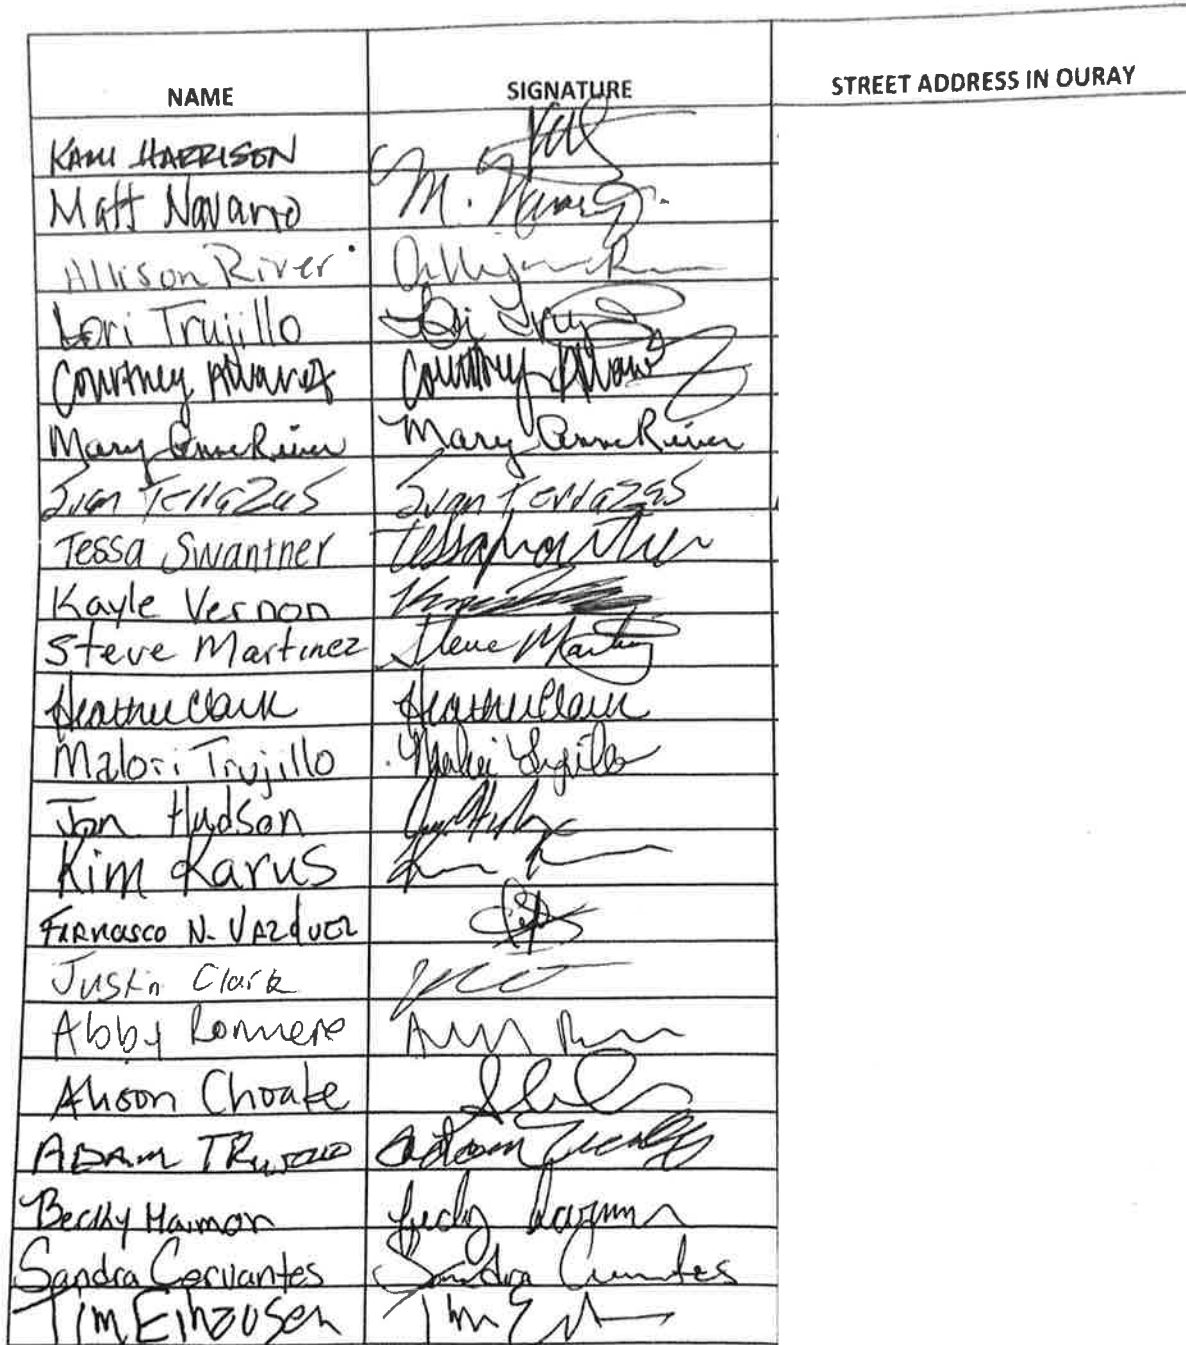 NAME SIGNATURE STREET ADDRESS IN OURAY
KAMI HARRISON
Matt Navarro M. Navarro
Allison River
Lori Trujillo Lori Truj
Courtney Alvarez Courtney Alvarez
Mary Anne River Mary Anne River
Ivan Terrazas Ivan Terrazas
Tessa Swantner Tessa Swantner
Kayle Vernon
Steve Martinez Steve Martinez
Heather Clark Heather Clark
Malori Trujillo Malori Trujillo
Jon Hudson
Kim Karus
N. VAZQUEZ
Justin Clark
Abby Romero
Alison Choate
ADAM TRUJILLO Adam
Becky Harmon
Sandra Cervantes Sandra Cervantes
Tim Eihausen Tim